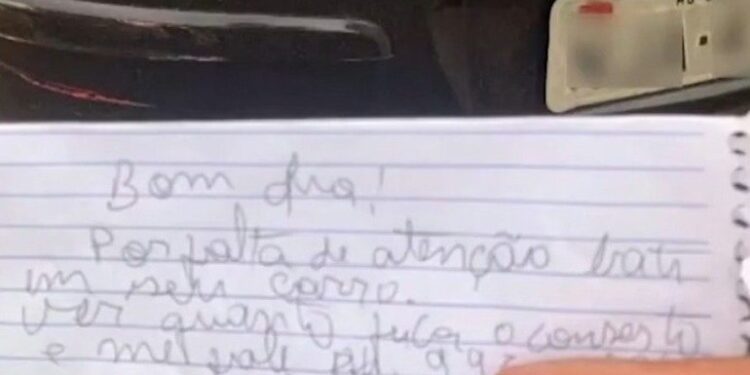 Bom dia!
Por falta de atenção bati
em seu carro.
ver quanto fica o conserto
e me